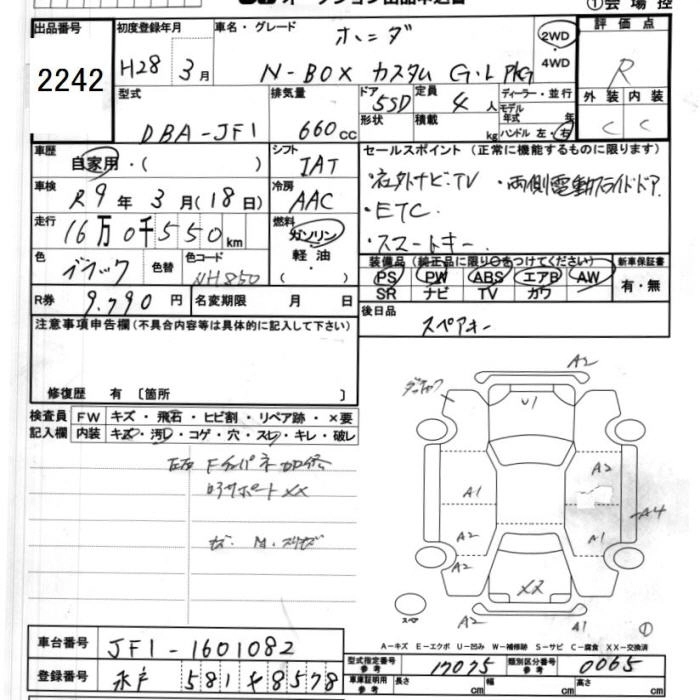 出品番号 2242
初度登録年月 H28 3月
車名・グレード ホンダ
N-BOX カスタム G・L PKG
2WD・4WD
評価点 R
外装 内装
C C
型式 DBA-JF1
排気量 660cc
ドア 5SD
形状
定員 4人
積載 kg
ディーラー・並行
モデル年式 年
ハンドル 左・右
車歴 自家用・( )
シフト IAT
車検 R9年3月(18日)
冷房 AAC
走行 16万0千550km
燃料 ガソリン・軽油・( )
色 ブラック
色替
カラーコード NH850
R券 9,790円
名変期限 月 日
セールスポイント (正常に機能するものに限ります)
・社外ナビ・TV ・両側電動スライドドア
・ETC
・スマートキー
装備品 (純正品に限り○をつけてください)
PS PW ABS エアB AW
SR ナビ TV カワ
新車保証書 有・無
後日品 スペアキー
注意事項申告欄 (不具合内容等は具体的に記入して下さい)
修復歴 有 〔箇所 〕
検査員記入欄
FW キズ・飛石・ヒビ割・リペア跡・×要
内装 キズ・汚レ・コゲ・穴・スレ・キレ・破レ
サポートXX
A2
U1
A2
A1
A4
A2
A1
A2
XX
スペア
A2
A1
①
A-キズ E-エクボ U-凹み W-補修跡 S-サビ C-腐食 XX-交換済
車台番号 JF1-1601082
登録番号 水戸 581 や 8578
型式指定番号 参考 17075
類別区分番号 参考 0065
車庫証明用 参考 長さ cm 幅 cm 高さ cm